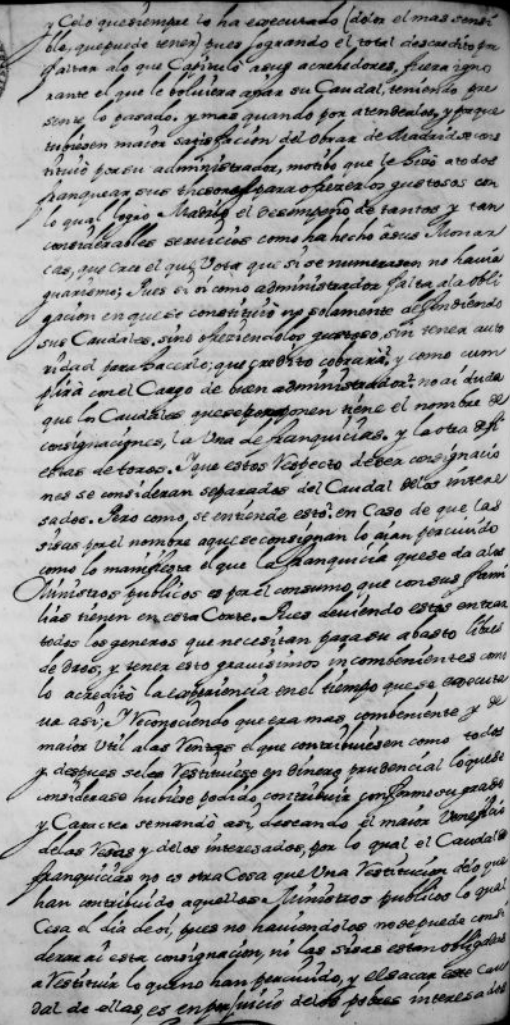 y Celo que siempre lo ha executado (dolor el mas sensi
ble, que puede tener) pues logrando el total descredito por
faltar alo que Capituló asus acrehedores, fuera igno
rante el que le bolviera afiar su Caudal, teniendo pre
sente lo pasado. y mas quando por atenderlos, y porque
tubiesen maior satisfacion del obrar de Madrid se cons
tituió por su administrador, motivo que le hizo a todos
franquear sus thesoros para ofrezerlos gustosos con
lo qual logró Madrid el desempeño de tantos y tan
considerables servicios como ha hecho â sus Monar
cas, que creo el que Vota que si se numerasen no havia
guarismo; Pues si oi como administrador falta ala obli
gacion en que se constituió no solamente defendiendo
sus Caudales, sino ofreziendolos gustoso, sin tener auto
ridad para hacerlo; que credito cobrará? y como cum
plirá con el Cargo de buen administrador? no ai duda
que los Caudales que se proponen tiene el nombre de
consignaciones, la Una de franquicias. y la otra de fi
estas de toros. Y que estos Respecto de ser consignacio
nes se consideran separados del Caudal delos intere
sados. Pero como, se entiende esto? en Caso de que las
sisas por el nombre aque se consignan lo aian percivido
como lo manifiesta el que la franquicia que se da alos
Ministros publicos es por el consumo, que con sus fami
lias tienen en esta Corte. Pues deviendo estos entrar
todos los generos que necesitan para su abasto libres
de dros, y tener esto gravisimos incombenientes como
lo acreditó la experiencia en el tiempo que se executa
va asi; Y Reconociendo que era mas combeniente y de
maior Util alas Rentas el que contribuiesen como todos
y despues seles Restituiese en dinero prudencial lo que se
considerase hubiese podido contribuir conforme su grado
y Caracter se mandó asi, deseando el maior Veneficio
delas Rentas y delos interesados, por lo qual el Caudal de
franquicias no es otra Cosa que Una Restitucion delo que
han contribuido aquellos Ministros publicos lo qual
Cesa el dia de oi, pues no haviendolos no se puede consi
derar ai esta consignacion, ni las sisas estan obligadas
a Restituir lo que no han percivido, y el sacar este Cau
dal de ellas, es en perjuicio delos pobres interesados